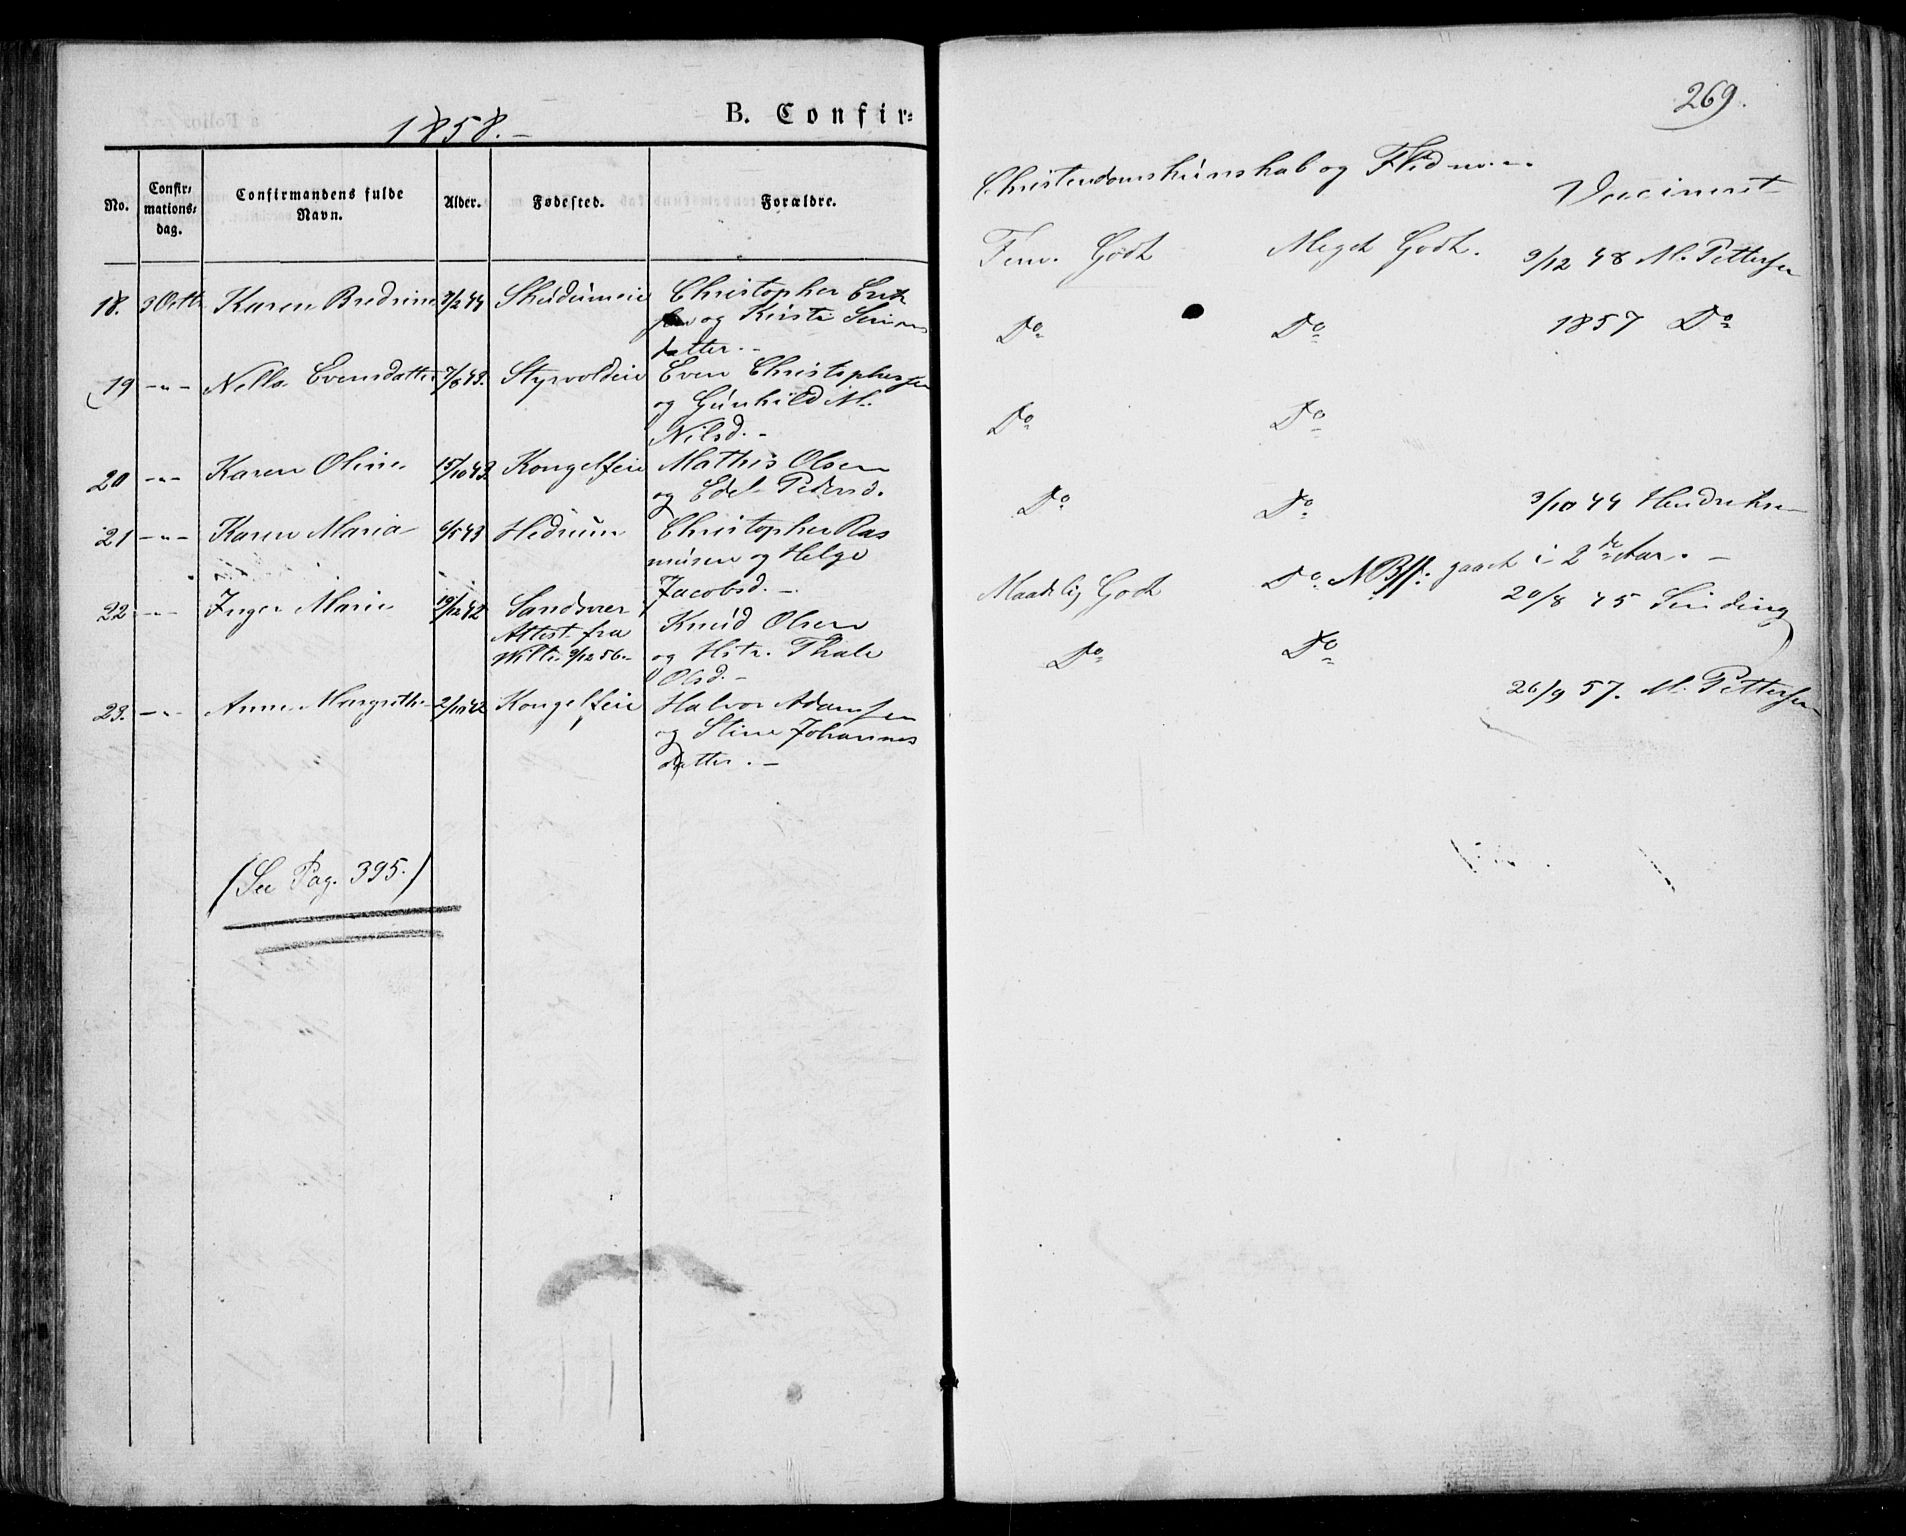 1858.-
B. Confir=
No.
Confir=
mations=
dag.
Confirmandens fulde
Navn.
Alder.
Fødested.
Forældre.
18. 3 Octb Karen Bredine 7/2 44 Skudumeie Christopher Erik
sen og Kirsti Simens
datter.-
19 -"- Nella Evensdatter 7/8 43. Styrvoldeie Even Christophersen
og Gunhild M.
Nilsd.-
20 -"- Karen Oline 15/10 43. Kongelfeie Mathis Olsen
og Edel Pedersd.
21 -"- Karen Maria 6/5 43 Hedrum Christopher Ras
musen og Helge
Jacobsd.-
22 -"- Inger Marie 19/12 42 Sandsvær Knud Olsen
Attest fra og Hstr. Thale
9/12 56- Olsd.-
23. -"- Anne Margrethe 2/10 42 Kongelfeie Halvor Adamsen
og Stine Johannes
datter.-
(See Pag. 395.)
269.
Christendomskunskab og Flid
Vaccineret
Godt Meget Godt. 9/12 48 M. Pettersen
Do Do 1857 Do
Do Do
Do Do 3/10 44 Hendriksen
Maadelig Godt Do NB: gaaet i 2de Aar.-
20/8 45 Sinding
Do Do
26/9 57. M. Pettersen